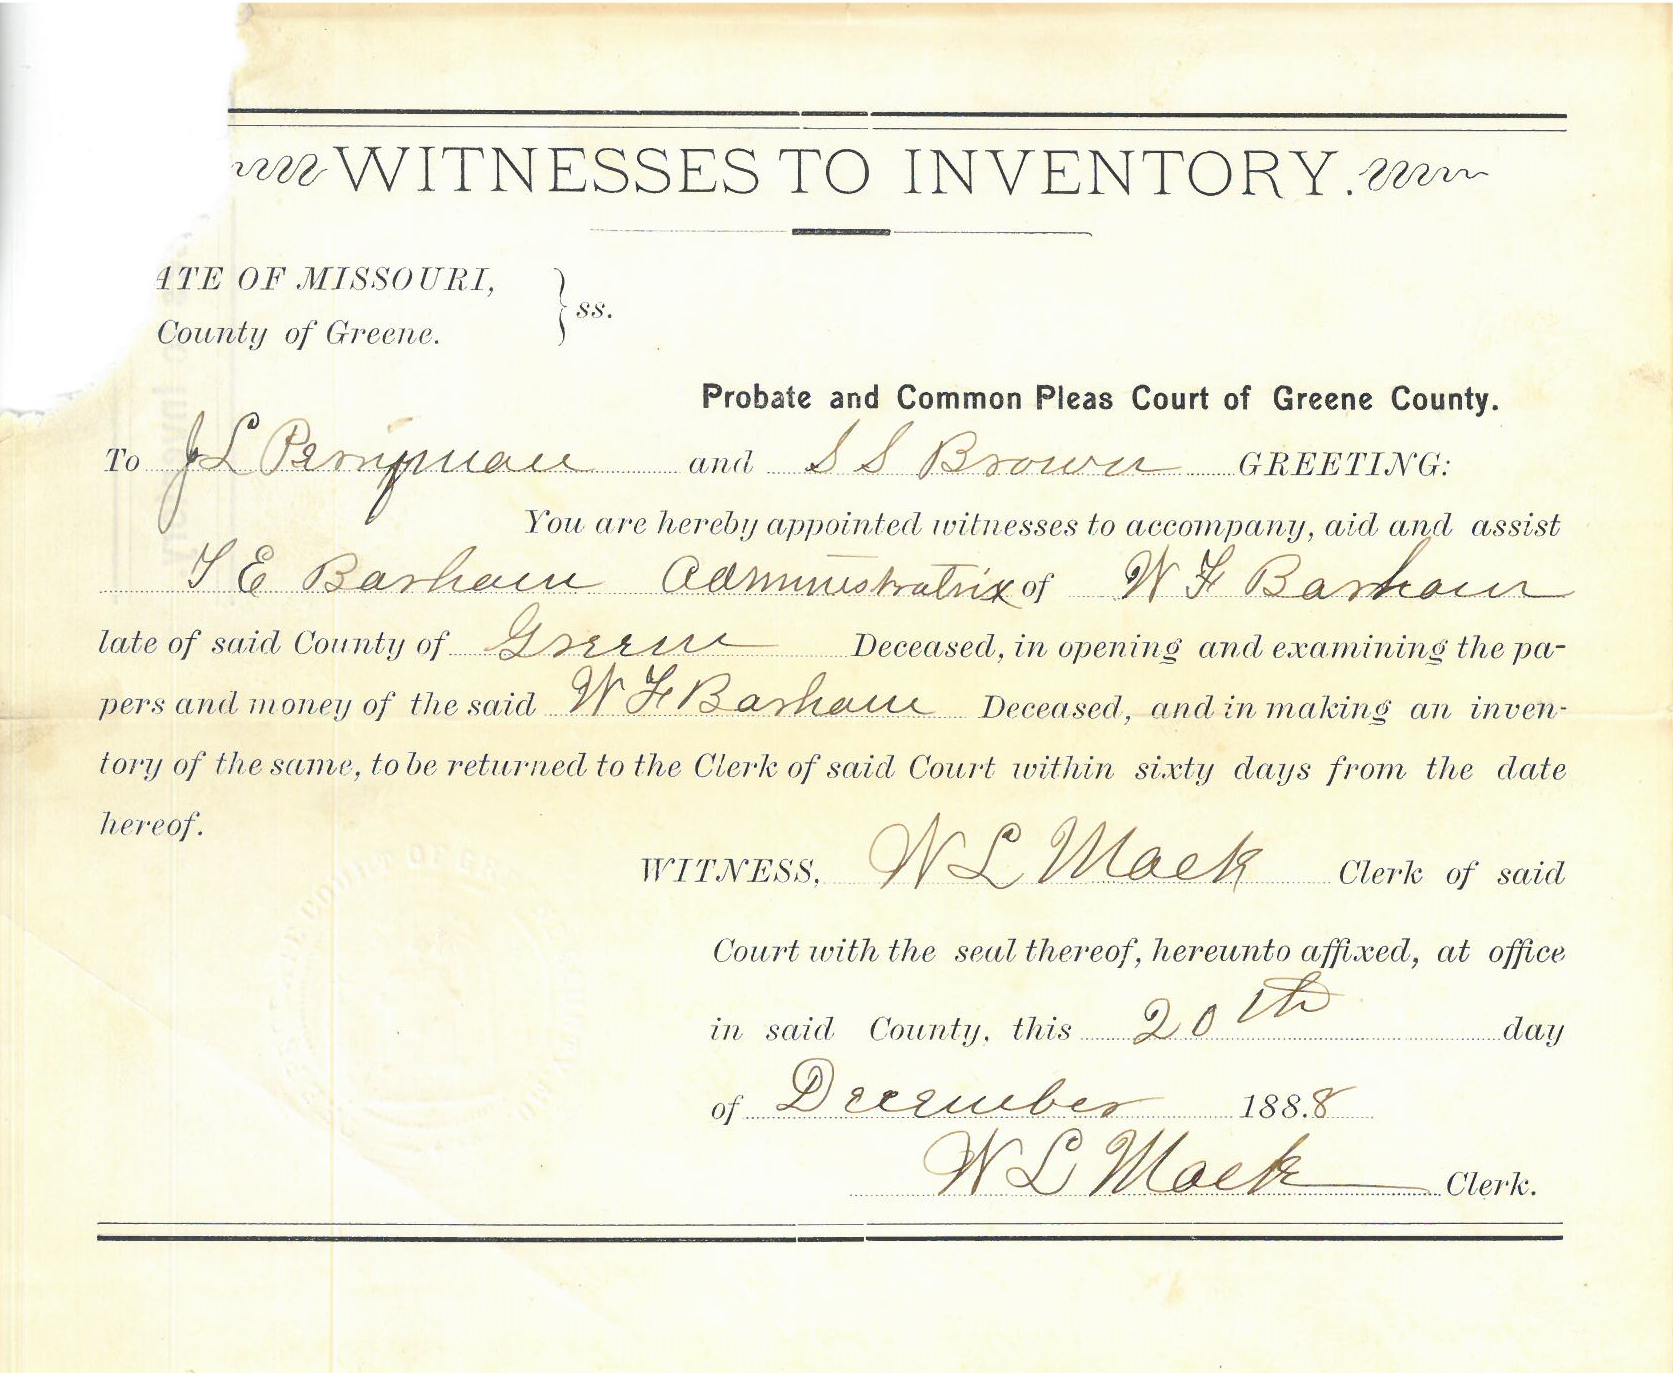 WITNESSES TO INVENTORY.
ATE OF MISSOURI, } ss.
County of Greene.
Probate and Common Pleas Court of Greene County.
To J L Perryman and S S Brown GREETING:
You are hereby appointed witnesses to accompany, aid and assist
T E Barham Administratrix of W F Barham
late of said County of Greene Deceased, in opening and examining the pa-
pers and money of the said W F Barham Deceased, and in making an inven-
tory of the same, to be returned to the Clerk of said Court within sixty days from the date
hereof.
WITNESS, W L Mack Clerk of said
Court with the seal thereof, hereunto affixed, at office
in said County, this 20th day
of December 188.8
W L Mack Clerk.